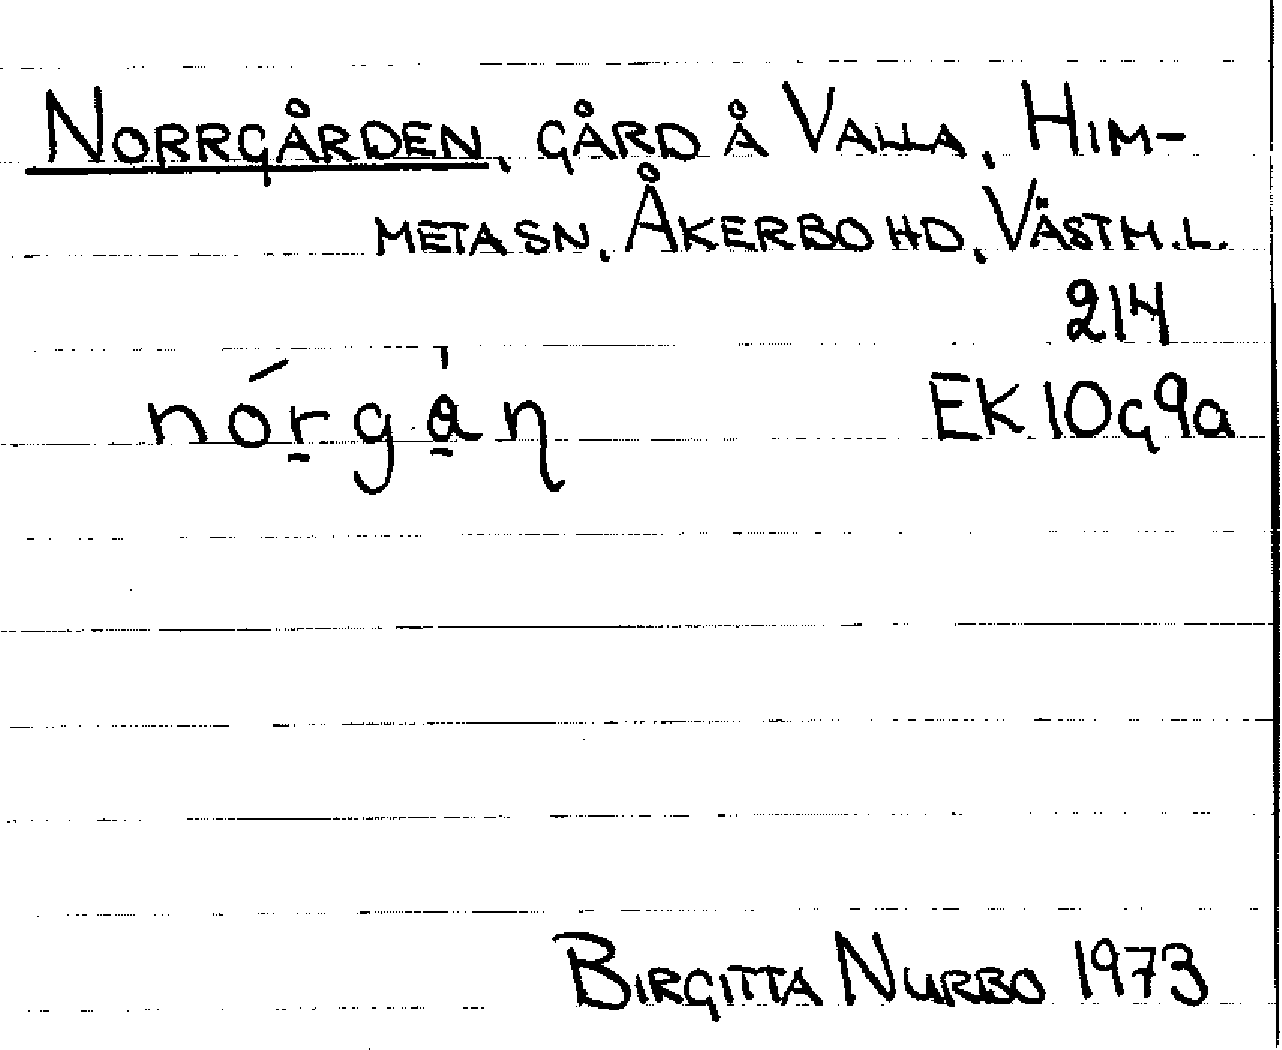 NORRGÅRDEN, GÅRD Å VALLA, HIM-
META SN, ÅKERBO HD, VÄSTM.L.
214
nórgån
EK 10G9a
BIRGITTA NURBO 1973